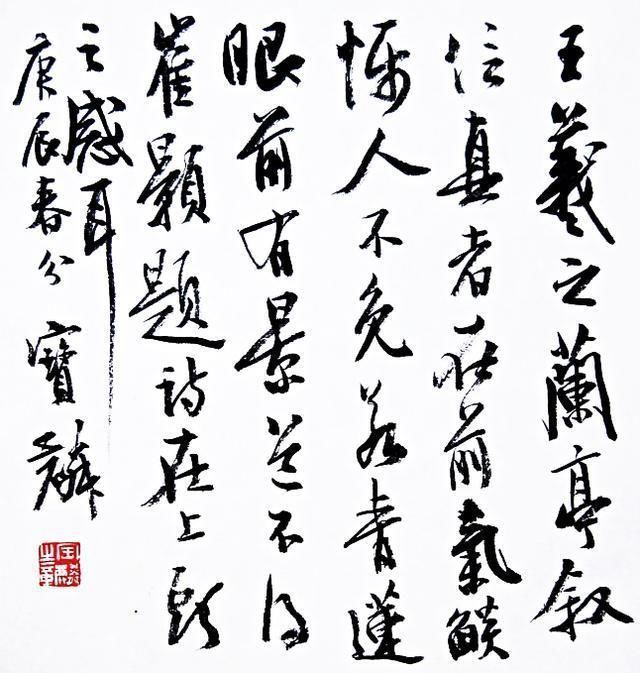 王羲之蘭亭叙
信真者在前氣餤
怖人不免若青蓮
眼前有景道不得
崔顥題詩在上頭
之感耳
庚辰春分 寶麟